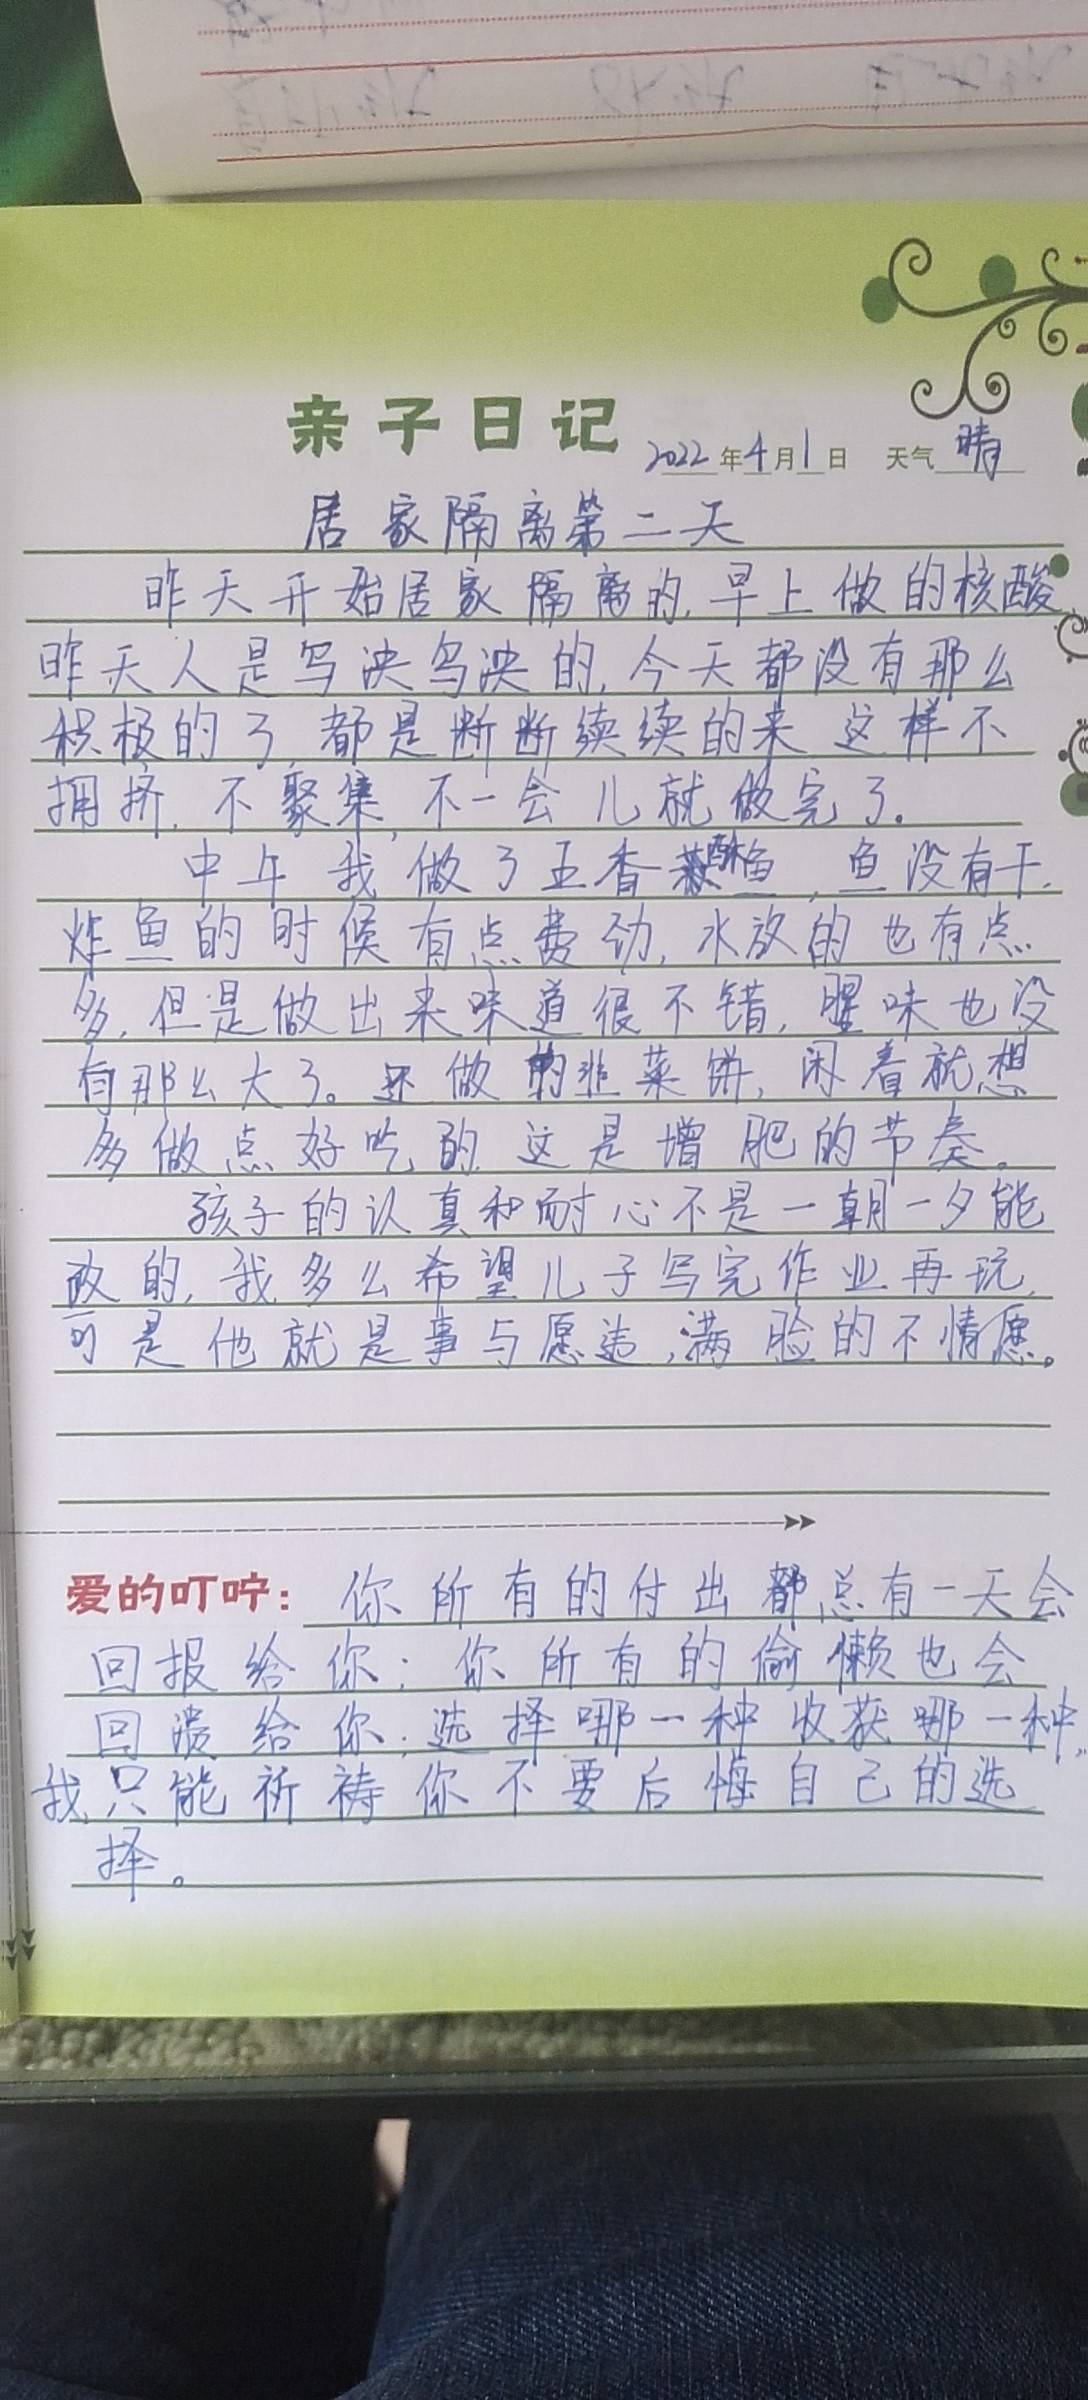 亲子日记 2022年4月1日 天气 晴
居家隔离第二天
昨天开始居家隔离的,早上做的核酸,
昨天人是乌泱乌泱的,今天都没有那么
积极的了,都是断断续续的来,这样不
拥挤,不聚集,不一会儿就做完了。
中午我做了五香酥鱼,鱼没有干,
炸鱼的时候有点费劲,水放的也有点
多,但是做出来味道很不错,腥味也没
有那么大了。还做的韭菜饼,闲着就想
多做点好吃的,这是增肥的节奏。
孩子的认真和耐心不是一朝一夕能
改的,我多么希望儿子写完作业再玩,
可是他就是事与愿违,满脸的不情愿。
爱的叮咛:你所有的付出都总有一天会
回报给你;你所有的偷懒也会
回溃给你;选择哪一种收获哪一种,
我只能祈祷你不要后悔自己的选
择。